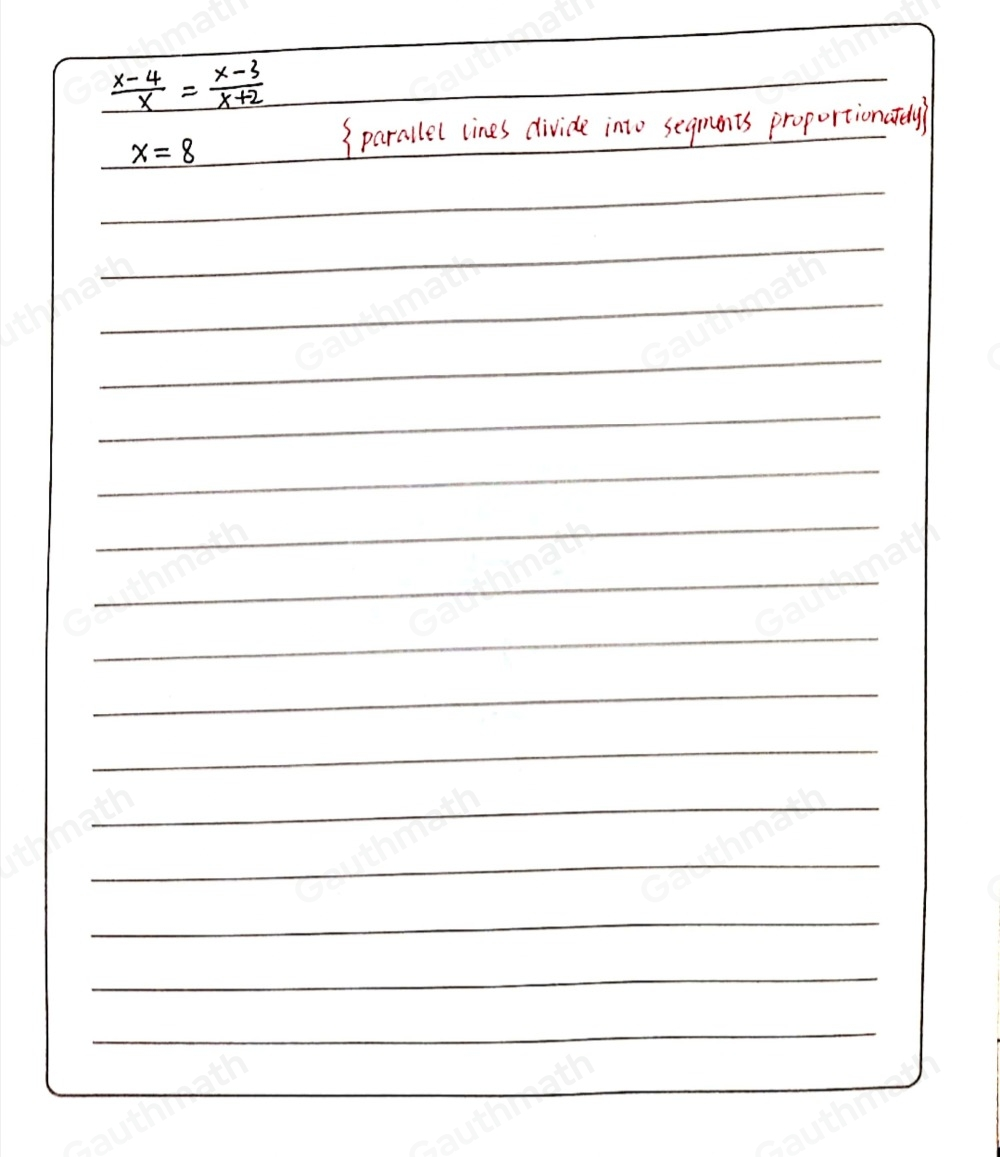 x-4/x = x-3/x+2
x = 8 {parallel lines divide into segments proportionately}
Gauthmath